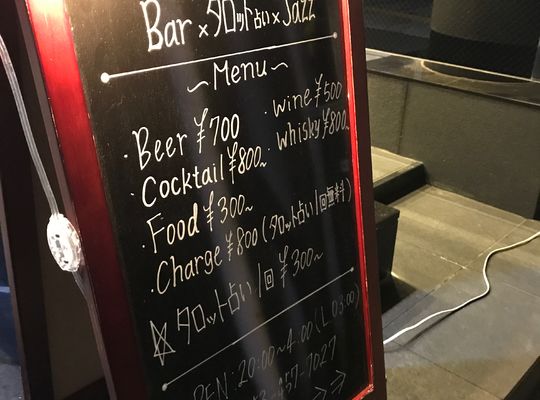 Bar×タロット占い×Jazz
～Menu～
・Beer ¥700
・wine ¥500
・Cocktail ¥800~
・whisky ¥800~
・Food ¥300~
・Charge ¥800(タロット占い1回無料)
☆タロット占い1回 ¥300~
PEN:20:00~4:00(L.O3:00)
457-7027